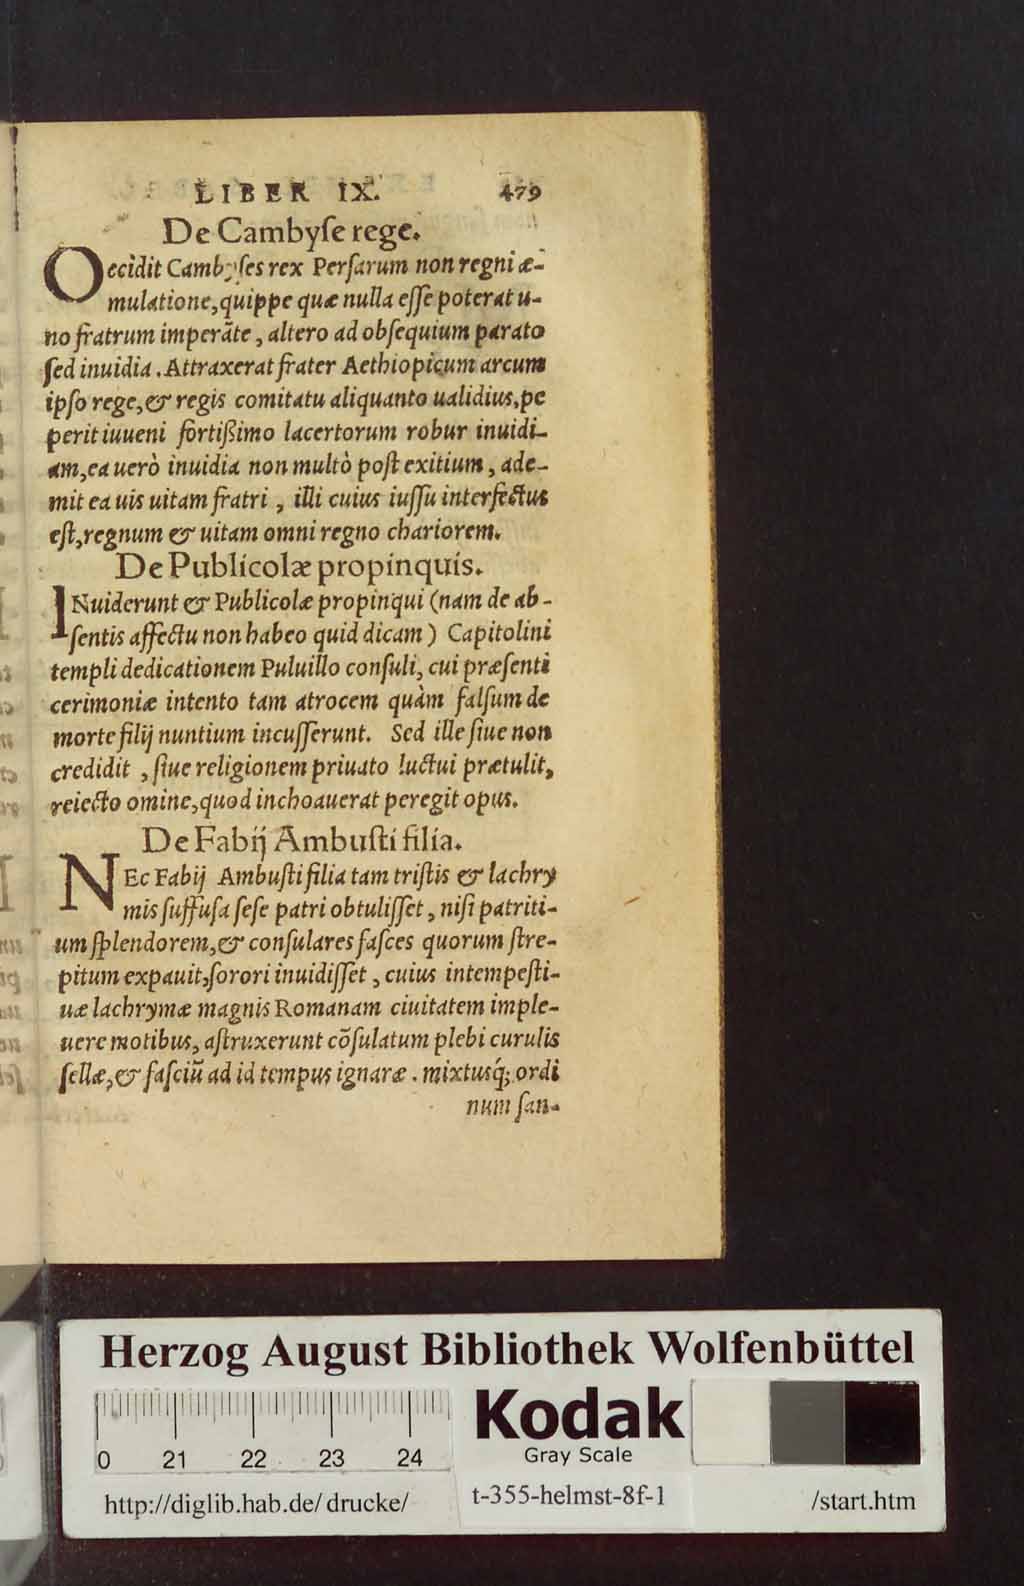 LIBER IX. 479
De Cambyſe rege.
Oecidit Cambyſes rex Perſarum non regni æ-
mulatione, quippe quæ nulla eſſe poterat u-
no fratrum imperãte, altero ad obſequium parato
ſed inuidia. Attraxerat frater Aethiopicum arcum
ipſo rege, & regis comitatu aliquanto ualidius, pe
perit iuueni fortißimo lacertorum robur inuidi-
am, ea uerò inuidia non multò poſt exitium, ade-
mit ea uis uitam fratri, illi cuius iuſſu interfectus
eſt, regnum & uitam omni regno chariorem.
De Publicolæ propinquis.
INuiderunt & Publicolæ propinqui (nam de ab-
ſentis affectu non habeo quid dicam) Capitolini
templi dedicationem Puluillo conſuli, cui præſenti
cerimoniæ intento tam atrocem quàm falſum de
morte filij nuntium incuſſerunt. Sed ille ſiue non
credidit, ſiue religionem priuato luctui prætulit,
reiecto omine, quod inchoauerat peregit opus.
De Fabij Ambuſti filia.
NEc Fabij Ambuſti filia tam triſtis & lachry
mis ſuffuſa ſeſe patri obtuliſſet, niſi patriti-
um ſplendorem, & conſulares faſces quorum ſtre-
pitum expauit, ſorori inuidiſſet, cuius intempeſti-
uæ lachrymæ magnis Romanam ciuitatem imple-
uere motibus, aſtruxerunt cõſulatum plebi curulis
ſellæ, & faſciũ ad id tempus ignaræ. mixtusq́; ordi
num ſan-
Herzog August Bibliothek Wolfenbüttel
0 21 22 23 24
Kodak
Gray Scale
http://diglib.hab.de/drucke/ t-355-helmst-8f-1 /start.htm